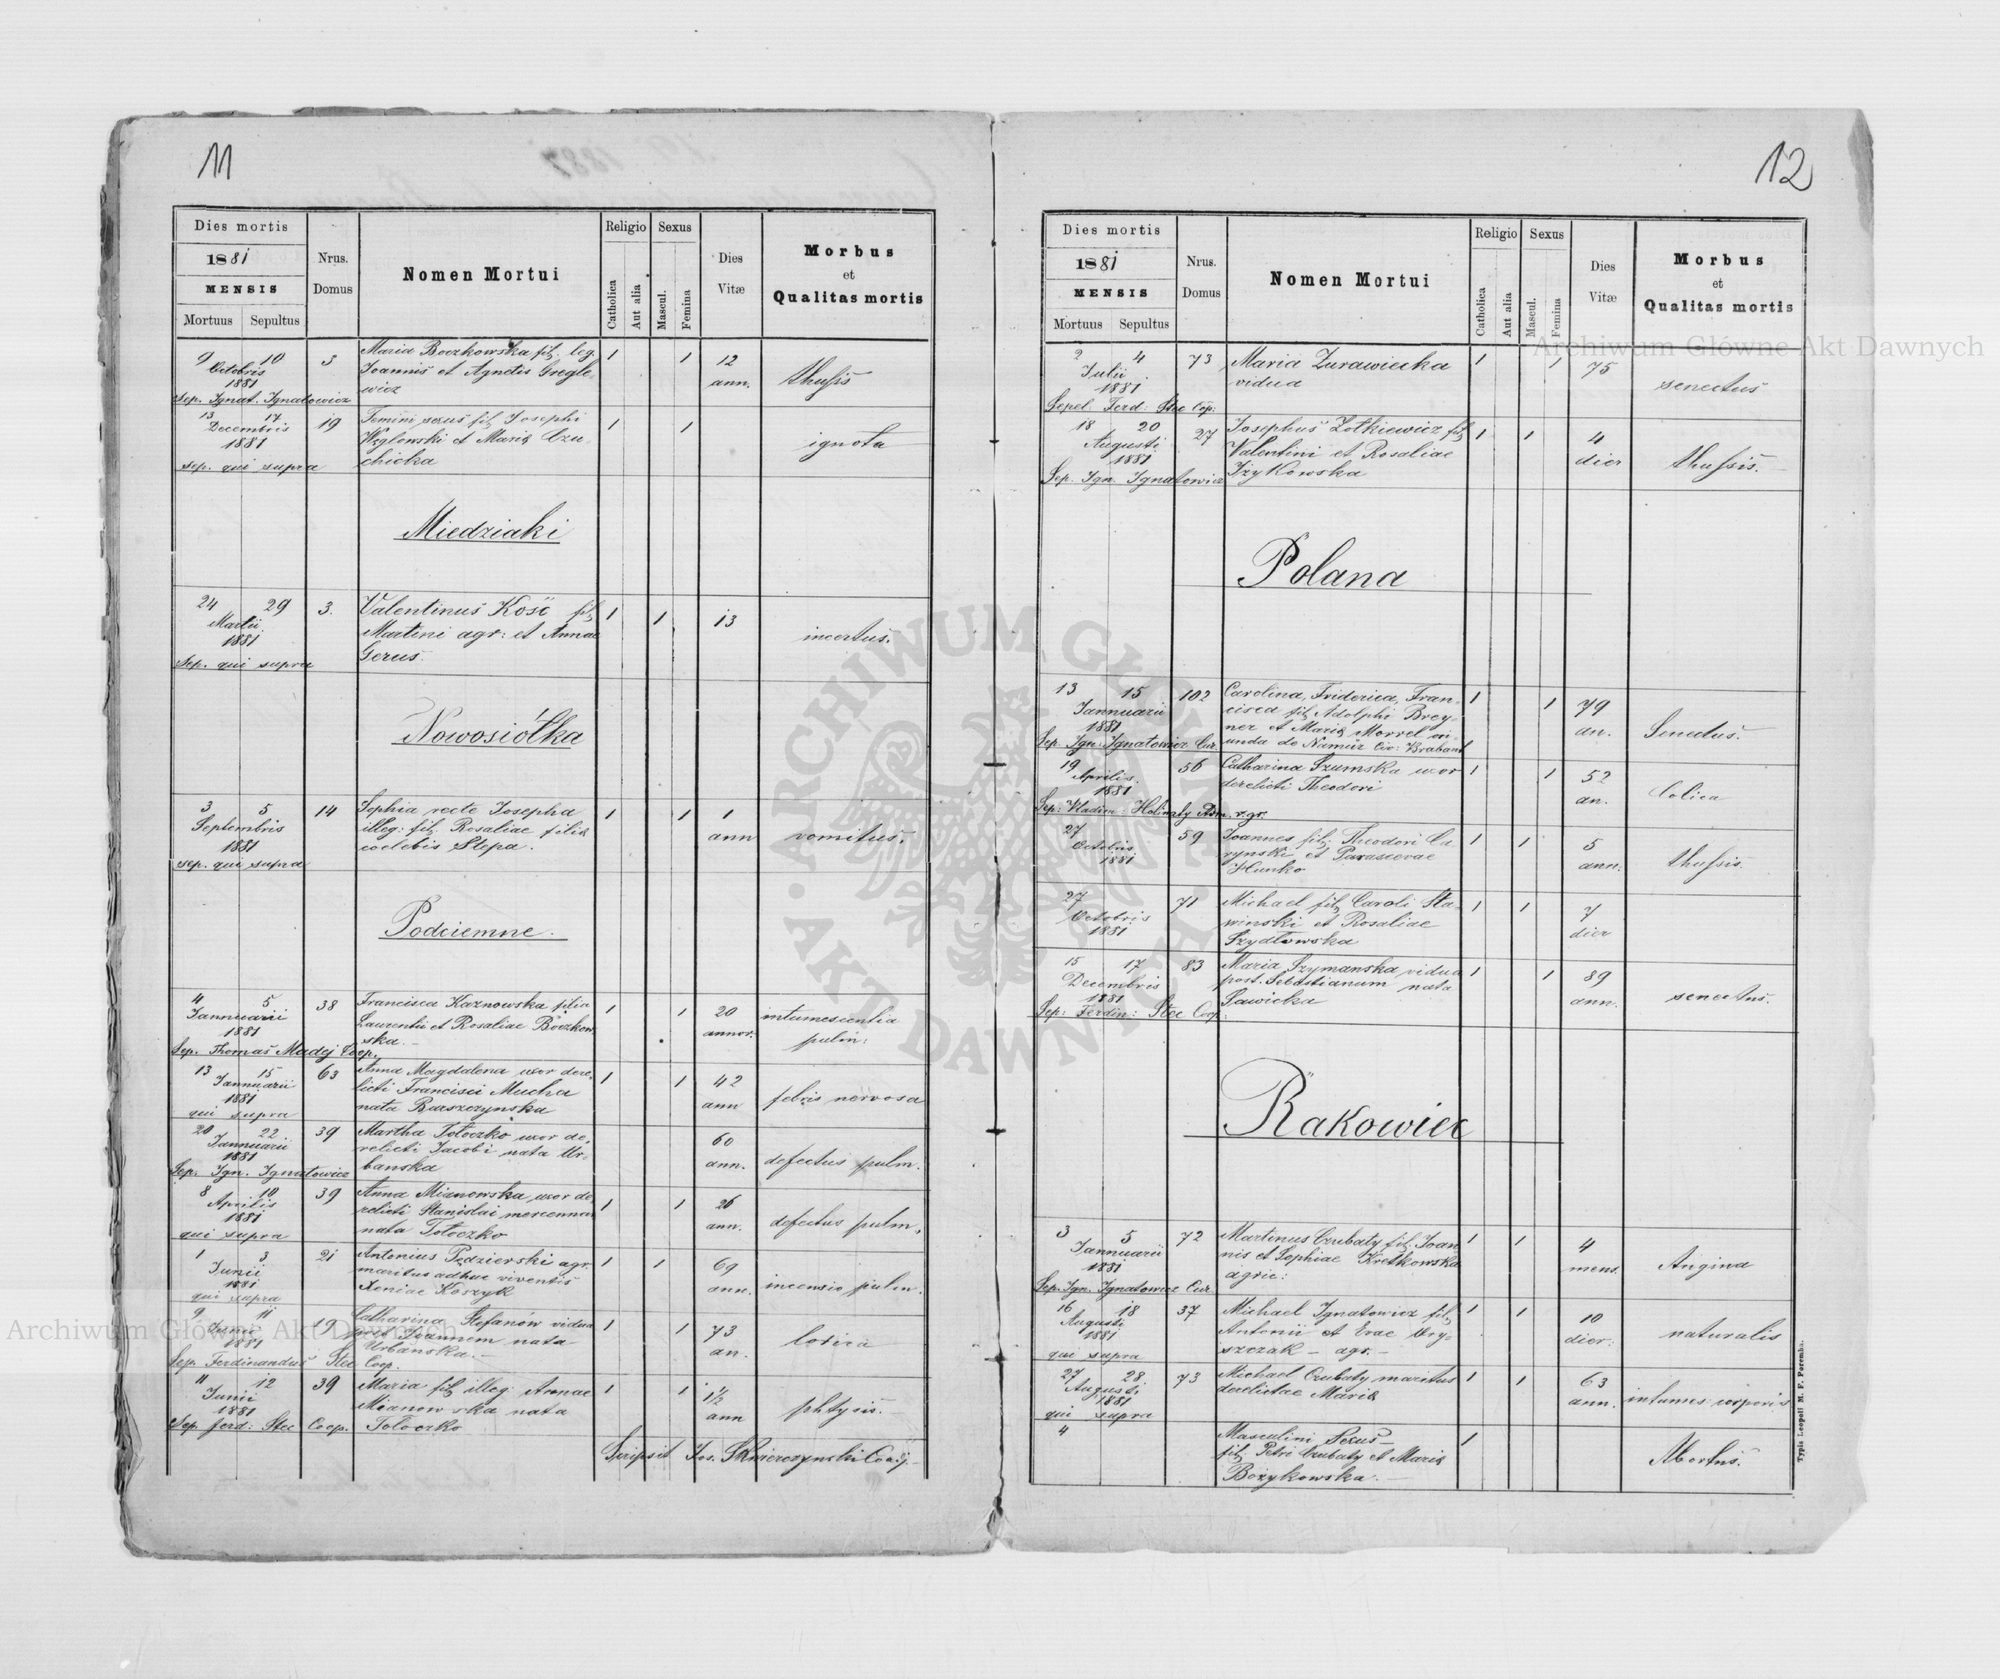 11
Dies mortis
1881
MENSIS
Mortuus Sepultus
Nrus. Domus
Nomen Mortui
Religio
Catholica
Aut alia
Sexus
Mascul.
Femina
Dies Vitæ
Morbus
et
Qualitas mortis
9 10 3 Maria Boczkowska fil. leg. 1 1 12 thussis
Octobris Joannis et Agnetis Gregle- ann.
1881 wicz
Sep. Ignat. Ignatowicz
13 17 19 Femini sexus fil. Josephi 1 1 ignota
Decembris Węglowski et Maria Czu-
1881 chicka
sep. qui supra
Miedziaki
24 29 3. Valentinus Kość fil. 1 1 13 incertus.
Martii Martini agr: et Annae
1881 Gerus.
Sep. qui supra
Nowosiółka
3 5 14 Sophia recte Josepha 1 1 1 vomitus.
Septembris illeg: fil. Rosaliae filia ann
1881 coelebis Slepa.
sep. qui supra
Podciemne.
4 5 38 Francisca Kaznowska filia 1 1 20 intumescentia
Jannuarii Laurentii et Rosaliae Boczkow annor. pulm:
1881 ska.
Sep. Thomas Madej Coop.
13 15 63 Anna Magdalena uxor dere- 1 1 42 febris nervosa
Jannuarii licti Francisci Mucha ann
1881 nata Barszczynska
qui supra
20 22 39 Martha Tołoczko uxor de- 60 defectus pulm.
Jannuarii relicti Jacobi nata Ur- ann.
1881 banska
Sep. Ign. Ignatowicz
8 10 39 Anna Mianowska uxor de- 1 1 26 defectus pulm.
Aprilis relicti Stanislai mercennar ann.
1881 nata Tołoczko
qui supra
1 3 21 Antonius Podzierski agr. 1 1 69 incensio pulm.
Junii maritus adhuc viventis ann.
1881 Xeniae Koszyk
qui supra
9 11 19 Catharina Stefanów vidua 1 1 73
Junii post Joannem nata an.
1881 Urbanska.
Sep Ferdinandus Stec Coop.
11 12 39 Maria fil. illeg. Annae 1 1 1½ phtysis.
Junii Mianowska nata ann
1881 Tołoczko
Sep ferd: Stec Coop.
Scripsit Jos. Skwierczynski
12
Dies mortis
1881
MENSIS
Mortuus Sepultus
Nrus. Domus
Nomen Mortui
Religio
Catholica
Aut alia
Sexus
Mascul.
Femina
Dies Vitæ
Morbus
et
Qualitas mortis
2 4 73 Maria Zurawiecka 1 1 75 senectus
Julii vidua
1881
Sepel. Ferd: Stec Cop:
18 20 27 Josephus Zołkiewicz fil. 1 1 4 thussis.
Augusti Valentini et Rosaliae dier
1881 Iżykowska
Sep. Ign. Ignatowicz
Polana
13 15 102 Carolina, Friderica, Fran- 1 1 79 Senectus.
Jannuarii cisca fil. Adolphi Brey- an.
1881 ner et Maria Morrel ori-
Sep. Ign. Ignatowicz Cur. unda de Namür Civ: Braband
19 56 Catharina Szumska uxor 1 1 52 Colica
Aprilis. derelicti Theodori an.
1881
Sep: Vladim: Adm. r.gr.
27 59 Joannes fil. Theodori Ca- 1 1 5 thussis.
Octobris rynski et Parascevae ann:
1881 Hunko
27 71 Michael fil. Caroli Sta- 1 1 7
Octobris winski et Rosaliae dier
1881 Szydłowska
15 17 83 Maria Szymanska vidua 1 1 89 senectus.
Decembris post. Sebastianum nata ann.
1881 Sawicka
Sep: Ferdin: Stec Coop:
Rakowiec
3 5 72 Martinus Czubaty fil. Joan- 1 1 4 Angina
Jannuarii nis et Sophiae Kretkowska mens.
1881 agric:
Sep. Ign. Ignatowicz Cur.
16 18 37 Michael Ignatowicz fil. 1 1 10 naturalis
Augusti Antonii et Evae Wry- dier:
1881 szczak - agr. -
qui supra
27 28 73 Michael Czubaty maritus 1 1 63 intumes: corporis
Augusti derelictae Maria ann.
1881
qui supra
4 Masculini Sexus 1 Abortus.
fil. Petri Czubaty et Maria
Bożykowska.
Typis Leopoli M. F. Poremba.
Archiwum Główne Akt Dawnych
Archiwum Główne Akt Dawnych
ARCHIWUM GŁÓWNE AKT DAWNYCH